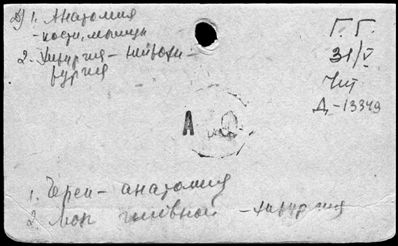 1. Анатомия
- кости, мышцы
2. Хирургия - нейрохи-
рургия
Г. Г.
31/V
Чит
Д-13349
А
1. Череп - анатомия
2. Мозг головной - хирургия